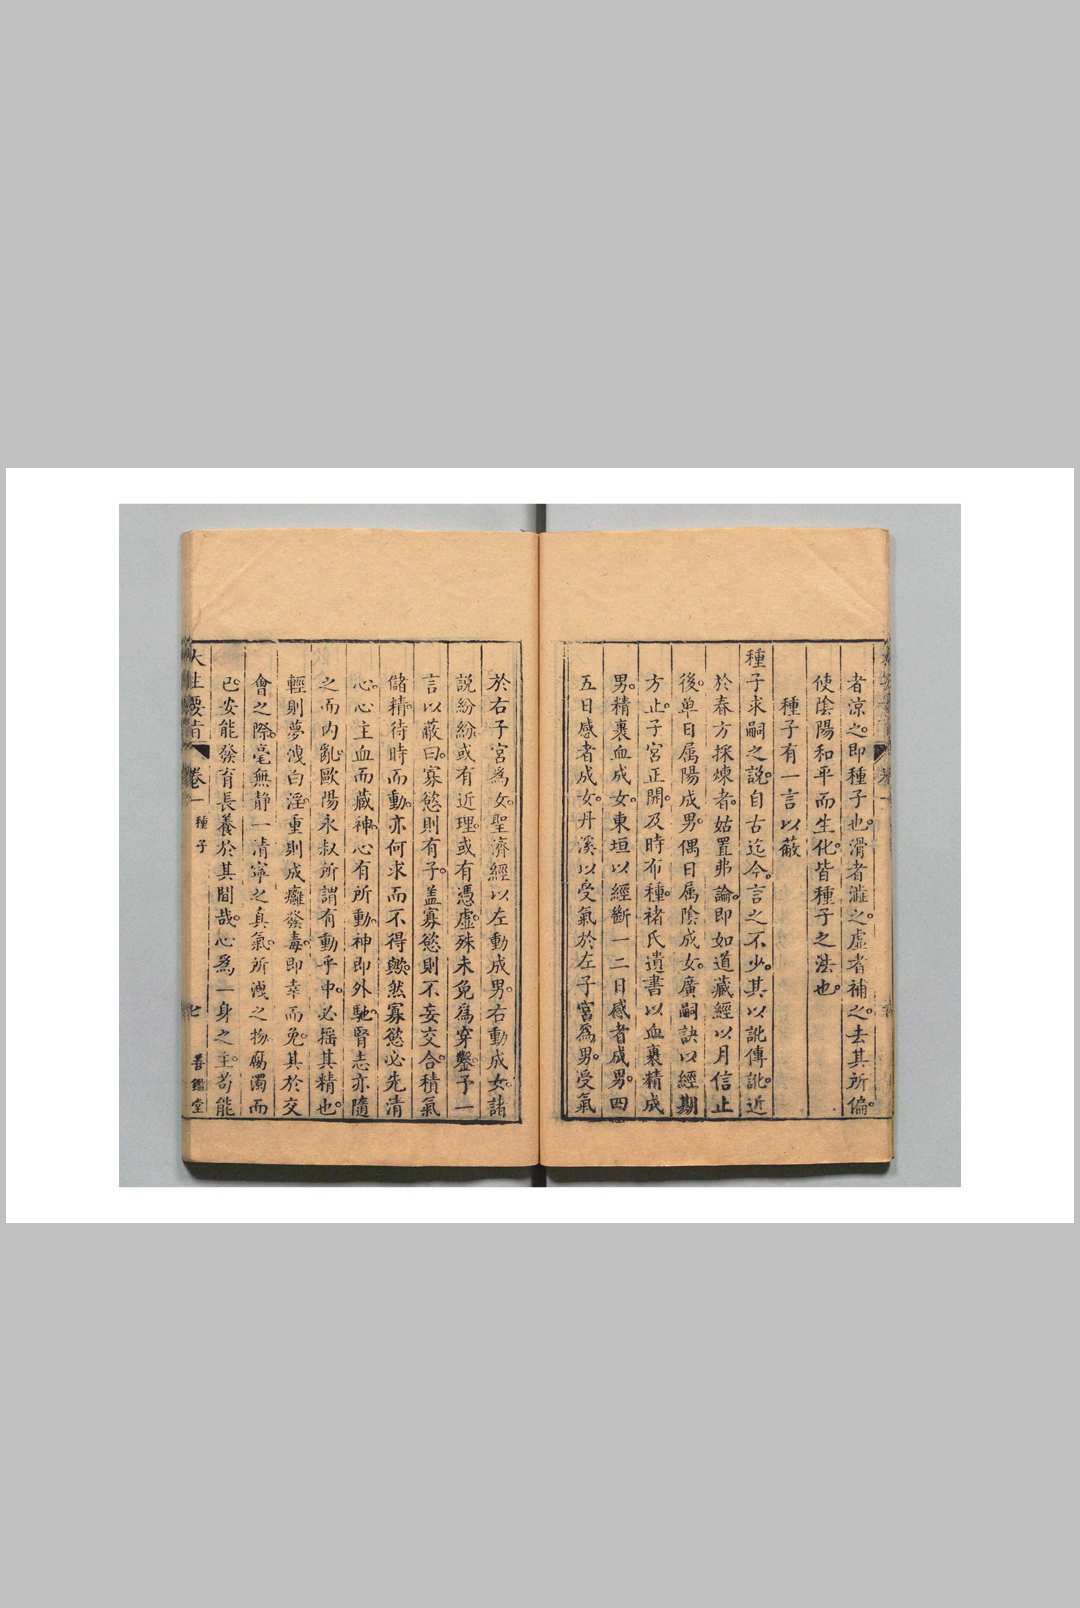 者涼之。即種子也。滑者澁之。虛者補之。去其所偏。
使陰陽和平而生化。皆種子之法也。
種子有一言以蔽
種子求嗣之說。自古迄今。言之不少。其以訛傳訛。近
於春方採煉者。姑置弗論。即如道藏經以月信止
後。单日屬陽成男。偶日屬陰成女。廣嗣訣以經期
方止。子宮正開。及時布種。褚氏遺書以血裹精成
男。精裹血成女。東垣以經斷一二日感者成男。四
五日感者成女。丹溪以受氣於左子宮爲男。受氣
於右子宮爲女。聖濟經以左動成男。右動成女。諸
說紛紛。或有近理。或有憑虛。殊未免爲穿鑿。予一
言以蔽曰。寡慾則有子。盖寡慾則不妄交合。積氣
儲精。待時而動。亦何求而不得歟。然寡慾必先清
心。心主血而藏神。心有所動。神即外馳。腎志亦隨
之而内亂。歐陽永叔所謂有動乎中。必揺其精也。
輕則夢洩白淫。重則成癰發毒。即幸而免。其於交
會之際。毫無静一清寧之真氣。所洩之物。腐濁而
已。安能發育長養於其間哉。心爲一身之主。苟能
大生要旨 卷一 種子 七 善鑑堂